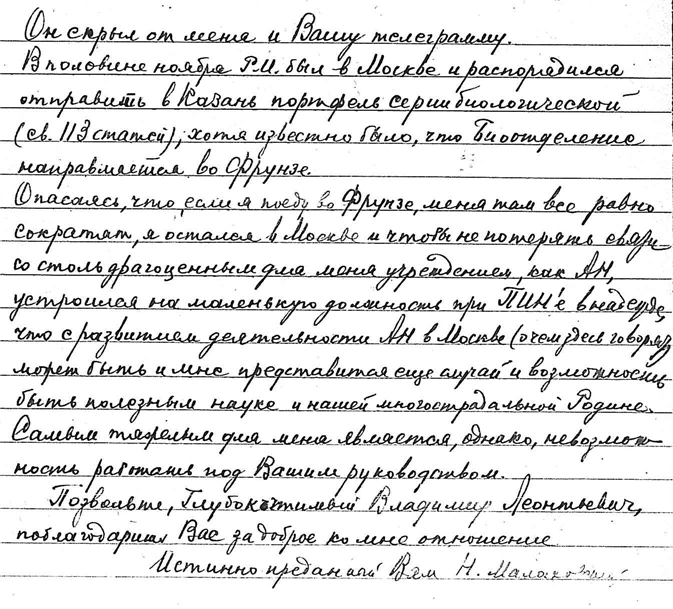 Он скрыл от меня и Вашу телеграмму.
В половине ноября Р.И. был в Москве и распорядился
отправить в Казань портфель серии биологической
(св. 113 статей), хотя известно было, что Биоотделение
направляется во Фрунзе.
Опасаясь, что если я поеду во Фрунзе, меня там все равно
сократят, я остался в Москве и чтобы не потерять связи
со столь драгоценным для меня учреждением, как АН,
устроился на маленькую должность при ПИН'е в надежде,
что с развитием деятельности АН в Москве (о чем здесь говорят)
может быть и мне представится еще случай и возможность
быть полезным науке и нашей многострадальной Родине.
Самым тяжелым для меня является, однако, невозмож-
ность работать под Вашим руководством.
Позвольте, Глубокочтимый Владимир Леонтьевич,
поблагодарить Вас за доброе ко мне отношение
Истинно преданный Вам Н.